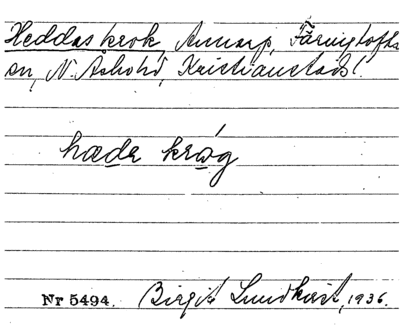 Heddas krok, Annarp, Färingtofta
sn, N. Åsbohd, Kristianstads l.
hæda krǫ́g
Nr 5494. Birgit Lundkvist, 1936.